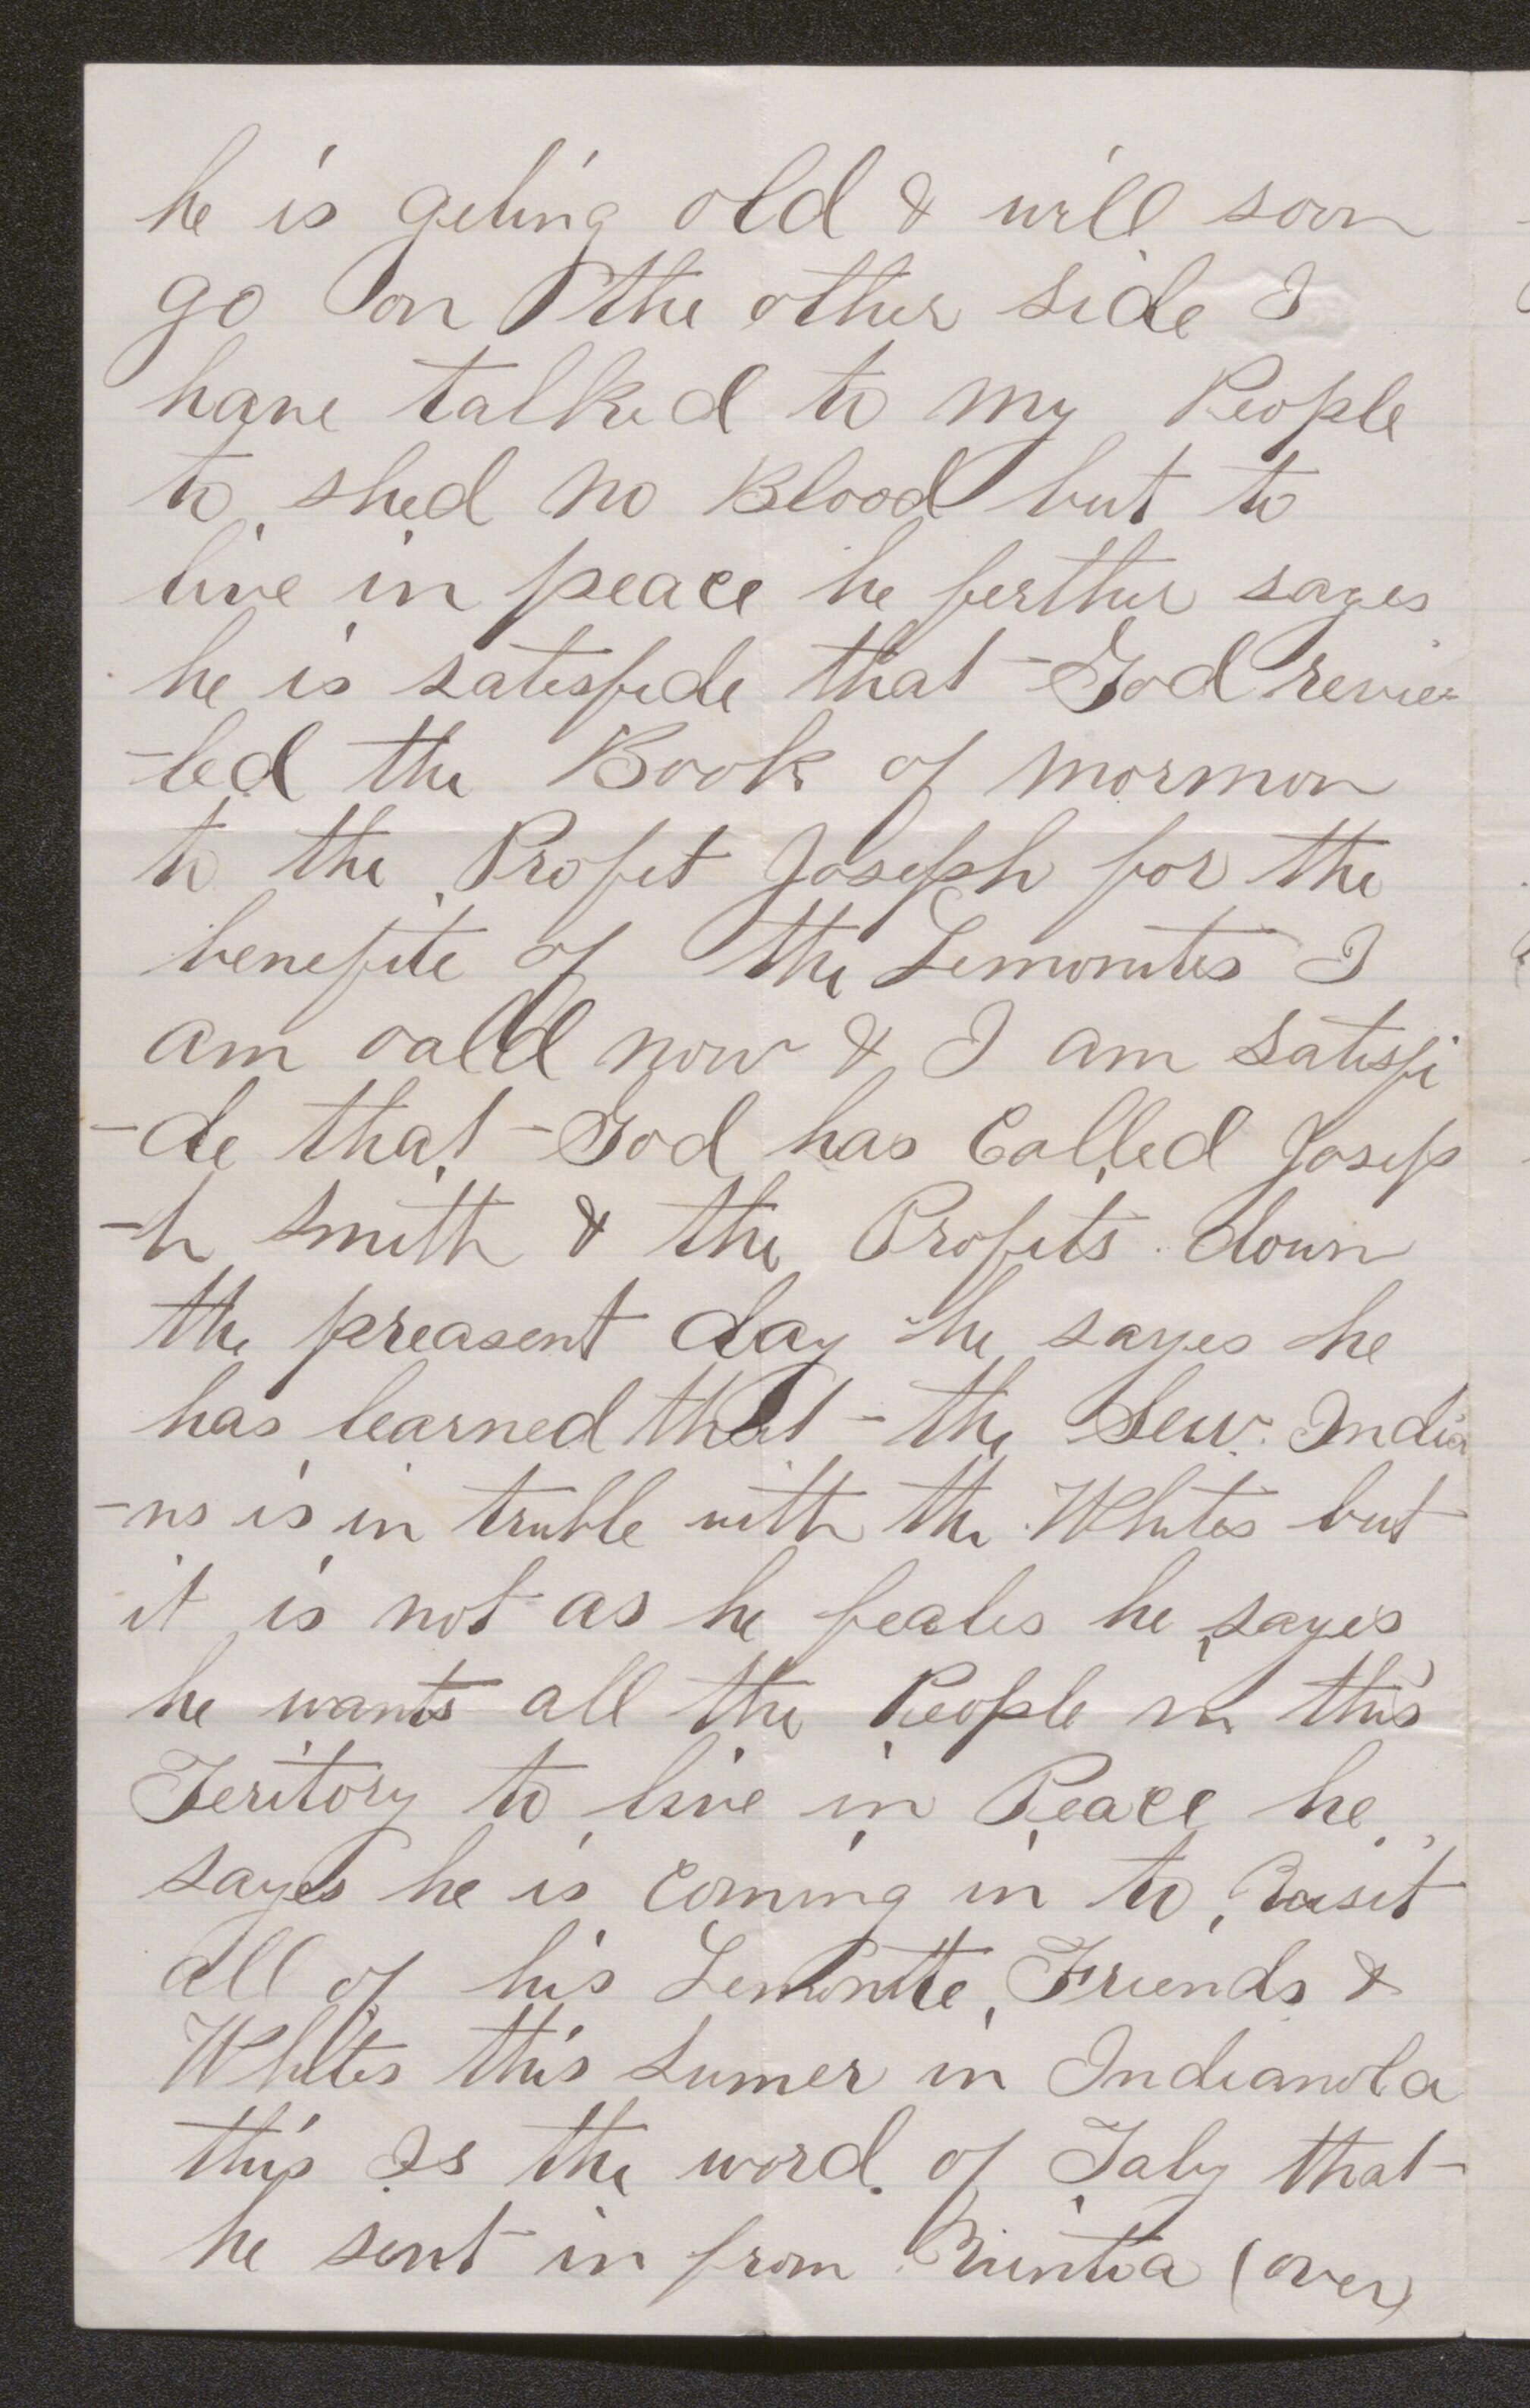 he is geting old & will soon
go on the other side I
have talked to my People
to shed no Blood but to
live in peace he ferther sayes
he is satesfide that God revie=
-led the Book of mormon
to the Profet Joseph for the
benefite of the Lemonites I
am oald now & I am satisfi
-de that God has Called Josep
-h Smith & the Profits down
the preasent day he sayes he
has learned that the Sew India
-ns is in truble with the Whites but
it is not as he feales he sayes
he wants all the People in this
Teritory to live in Peace he
sayes he is Coming in to Visit
all of his Lemonite Friends &
Whites this Sumer in Indianola
this Is the word of Taby that
he sent in from Uintia (over)